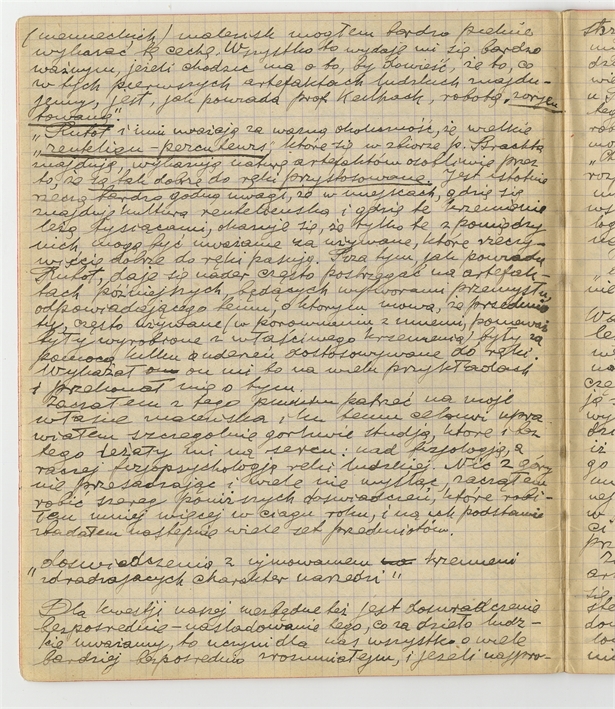 (niemieckich) znalezisk mogłem bardzo pięknie
wykazać tę cechę. Wszystko to wydaje mi się bardzo
ważnym, jeżeli chodzić ma o to, by dowieść, że to, co
w tych pierwszych artefaktach ludzkich znajdu-
jemy, jest, jak powiada prof. robotą
towaną."
"Rutot i inni uważają za ważną okoliczność, że wielkie
"reutelien-percuteurs", które są w zbiorze p. Brachta
znajdują, wykazują naturę artefaktów osobliwie przez
to, że są tak dobrze do ręki przystosowane. Jest istotnie
rzeczą bardzo godną uwagi, że w miejscach, gdzie się
znajduje kultura reutelewska i gdzie te krzemienie
leżą tysiącami, okazuje się, że tylko te z pomiędzy
nich, mogą być uważane za używane, które rzeczy-
wiście dobrze do ręki pasują. Poza tym, jak powiada
Rutot, daje się nader często postrzegać na artefak-
tach późniejszych, będących wytworami przemysłu,
odpowiadającego temu, o którym mowa, że przedmio-
ty, często używane (w porównaniu z innemi,
były wyrobione z właściwego krzemienia) były za
pomocą kilku uderzeń dostosowywane do ręki.
Wykazał on mi to na wielu przykładach
i przekonał mię o tym.
Zacząłem z tego patrzeć na moje
własne znaleziska i ku temu celowi upra-
wiałem szczególnie gorliwie studja, które i bez
tego leżały mi na sercu: nad fizjologją, a
raczej fizjopsychologją ręki ludzkiej. Nic z góry
nie przesądzając i wiele nie myśląc, zacząłem
robić szereg poniższych doświadczeń, które robi-
łem mniej więcej w ciągu roku, i na ich podstawie
zbadałem następnie wiele set przedmiotów.
"Doświadczenia z ujmowaniem krzemieni
zdradzających charakter narzędzi"
Dla kwestji naszej niezbędne też jest doświadczenie
bezpośrednie – naśladowanie tego, co za dzieło ludz-
kie uważamy, to uczyni dla nas wszystko o wiele
bardziej bezpośrednio zrozumiałym, i jeżeli najpro-